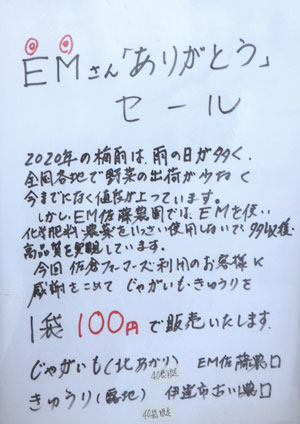 EMさん「ありがとう」
セール
2020年の梅雨は、雨の日が多く、
全国各地で野菜の出荷が少なく
今までになく値段が上っています。
しかし、EM佐藤農園では、EMを使い
化学肥料・農薬をいっさい使用しないで、多収穫・
高品質を実現しています。
今回佐倉フォーマーズご利用のお客様に
感謝をこめて じゃがいも・きゅうりを
1袋 100円 で販売いたします.
じゃがいも(北あかり) EM佐藤農口
40袋限定
きゅうり(露地) 伊達市 農口
40袋限定